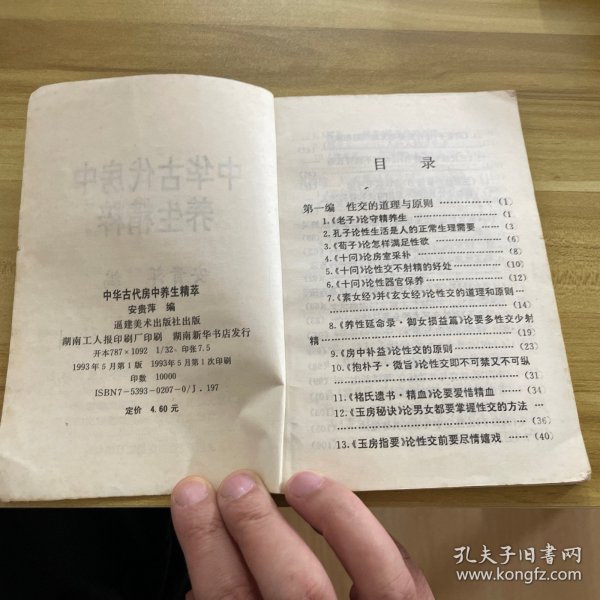 中华古代房中养生精萃
安贵萍 编
福建美术出版社出版
湖南工人报印刷厂印刷 湖南新华书店发行
开本787×1092 1/32 印张7.5
1993年5月第1版 1993年5月第1次印刷
印数 10000
ISBN7-5393-0207-0/J.197
定价 4.60元
目录
第一编 性交的道理与原则 ……………… (1)
1.《老子》论守精养生 ……………… (1)
2.孔子论性生活是人的正常生理需要 …… (3)
3.《荀子》论怎样满足性欲 ……………… (6)
4.《十问》论房室采补 ……………… (8)
5.《十问》论性交不射精的好处 ……………… (10)
6.《十问》论性器官保养 ……………… (12)
7.《素女经》并《玄女经》论性交的道理和原则 ……
(14)
8.《养性延命录·御女损益篇》论要多性交少射
精 ……………… (19)
9.《房中补益》论性交的原则 ……………… (23)
10.《抱朴子·微旨》论性交即不可禁又不可纵
……………… (31)
11.《褚氏遗书·精血》论要爱惜精血 …… (34)
12.《玉房秘诀》论男女都要掌握性交的方法 ……
(36)
13.《玉房指要》论性交前要尽情嬉戏 …… (40)
孔夫子旧书网
www.kongfz.com